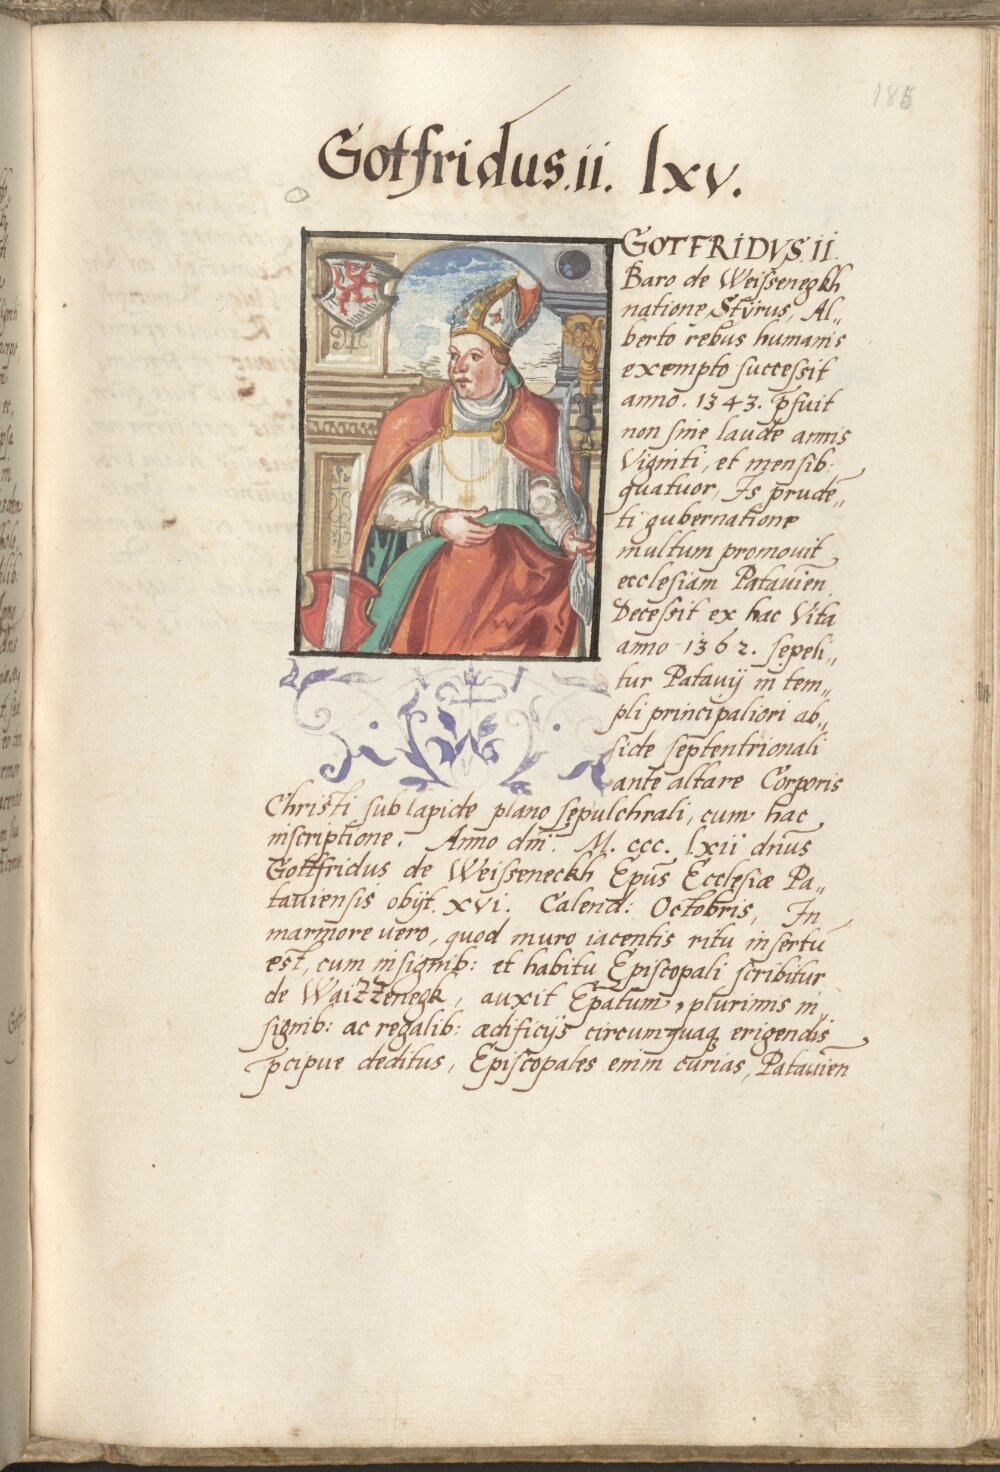 185
Gotfridus.ii. lxv.
GOTFRIDVS. II.
Baro de Weissenegkh
natione Stÿrus, Al„
berto rebus humanis
exempto successit
anno. 1343. p̄fuit
non sine laude annis
Viginti, et mensib:
quatuor, Is prudē„
ti gubernatione
multum promouit
ecclesiam Patauien̄
Decessit ex hac Vita
anno 1362. sepeli„
tur Patauij in tem„
pli principaliori ab„
side septentrionali
ante altare Corporis
Christi sub lapide plano sepulchrali, cum hac
inscriptione. Anno dm̄. M. ccc. lxii dn̄us
Gottfridus de Weisseneckh Epūs Ecclesiæ Pa„
tauiensis obijt. xvi. Calend: Octobris, In
marmore uero, quod muro iacentis ritu insertū
est, cum insignib: et habitu Episcopali scribitur
de WaiZZenegk, auxit Ep̄atum, plurimis in„
signib: ac regalib: ædificijs circumquaq erigendis
p̄cipue deditus, Episcopales enim curias, Patauien̄